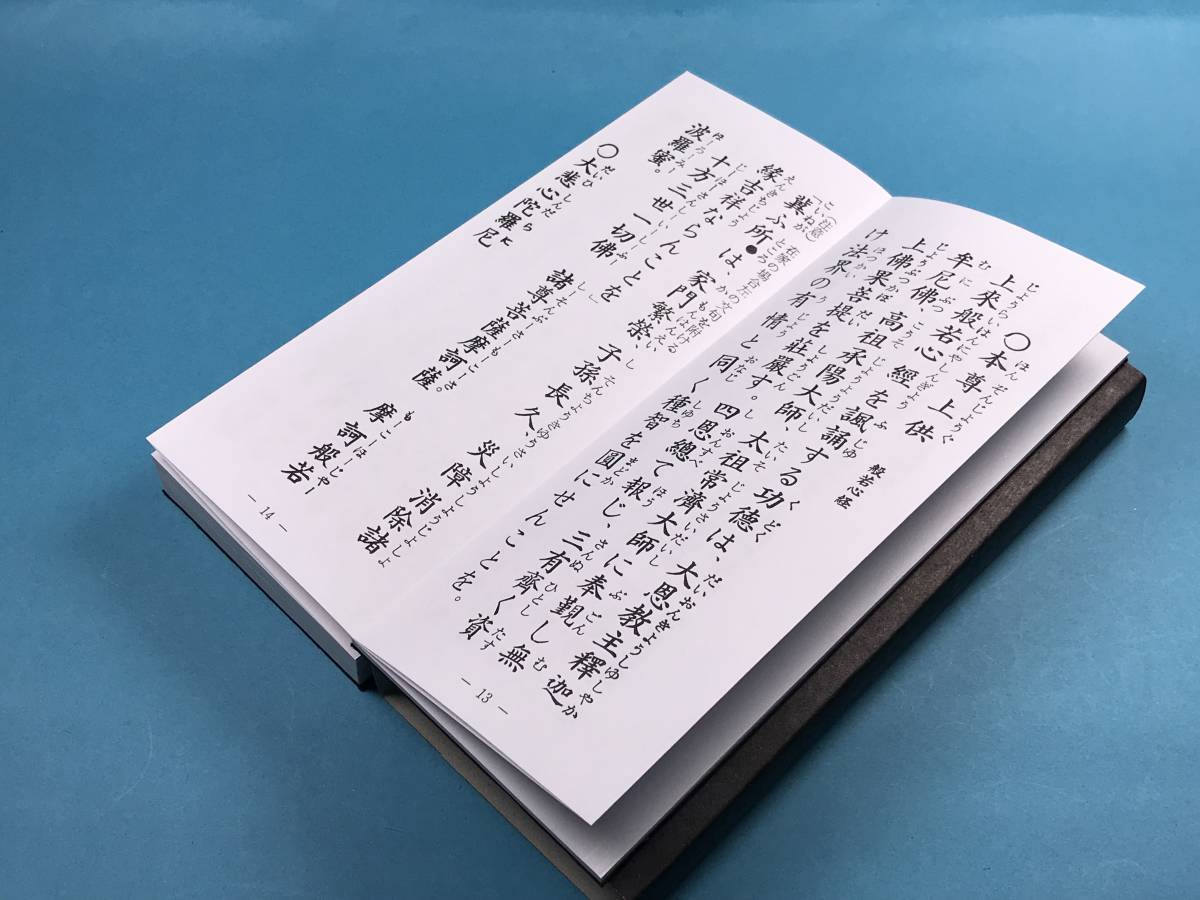 ○本尊上供 般若心経
上來般若心經を諷誦する功德は、大恩教主釋迦
牟尼佛、高祖承陽大師、太祖常濟大師に奉覲し無
上佛果菩提を莊嚴す。四恩總て報じ、三有齊く資
け法界の有情と同く種智を圓にせんことを。
― 13 ―
(注意) 在家の場合左の文句を附ける
「冀ふ所●は、家門繁榮、子孫長久、災障消除諸
緣吉祥ならんことを」
十方三世一切佛 諸尊菩薩摩訶薩。 摩訶般若
波羅蜜。
○大悲心陀羅尼
― 14 ―